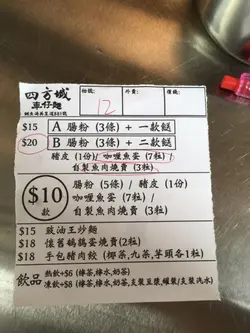 四方城
車仔麵
枱號:
外賣:
價錢:
12
$15 A 腸粉 (3條) + 一款餸
$20 B 腸粉 (3條) + 二款餸
豬皮 (1份)/咖哩魚蛋 (7粒)/
自製魚肉燒賣 (3粒)
$10
款
腸粉 (5條) / 豬皮 (1份)
咖哩魚蛋 (7粒)/
自製魚肉燒賣 (3粒)
$15 豉油王炒麵
$18 懷舊鵪鶉蛋燒賣(2粒)
$18 手包豬肉餃 (椰菜,九菜,芋頭各1粒)
飲品
熱飲+$6 (檸茶,檸水,奶茶)
凍飲+$8 (檸茶,檸水,奶茶,支裝豆漿,罐裝/支裝汽水)